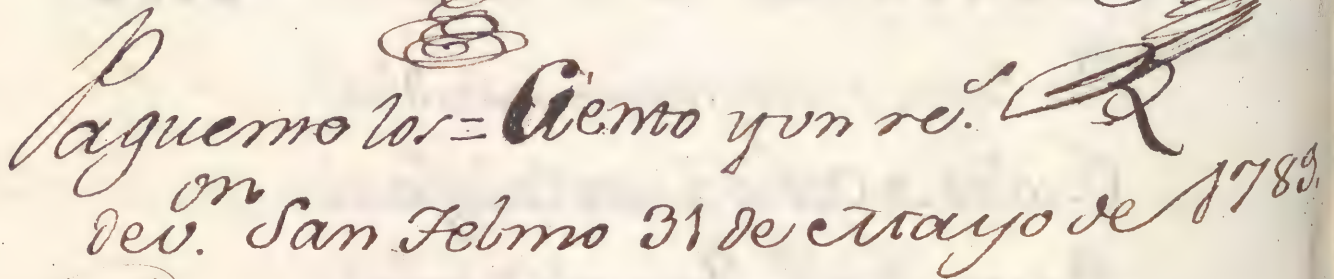 Paguemelos = Ciento y un rs.
de v.on San Telmo 31 de Mayo de 1789.